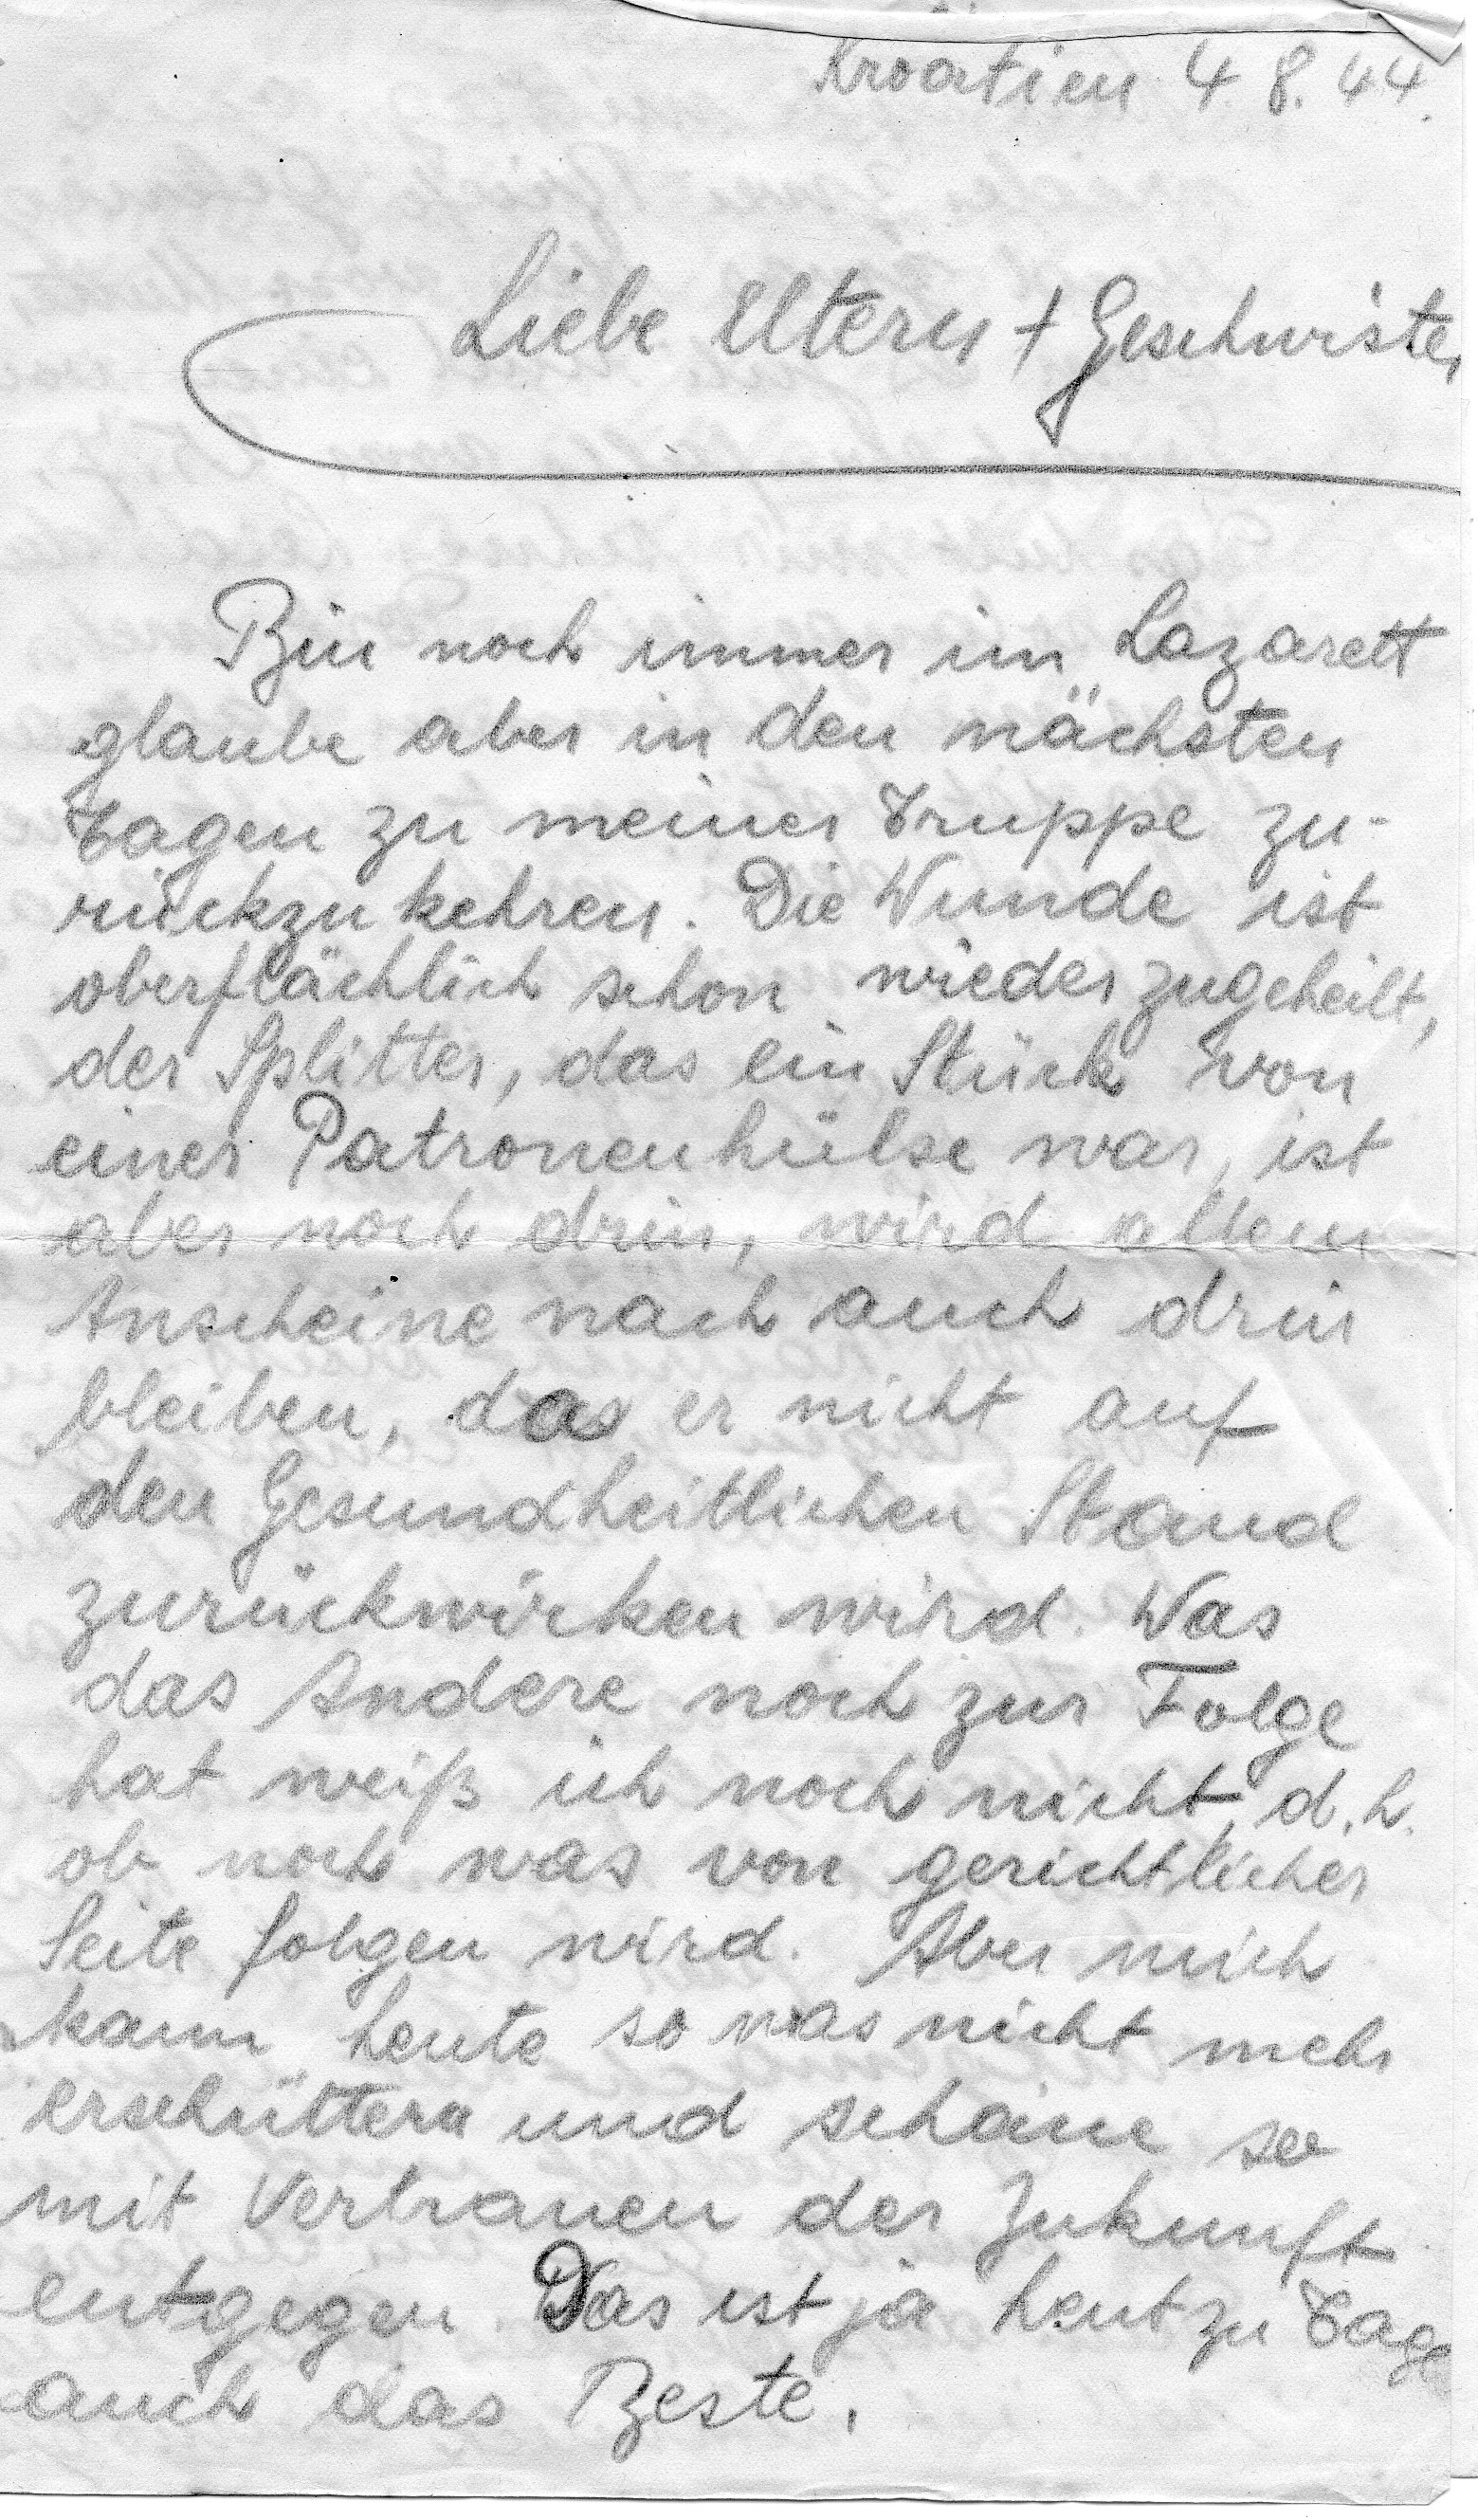 Kroatien 4.8.44.
Liebe Eltern + Geschwister
Bin noch immer im Lazarett
glaube aber in den nächsten
Tagen zu meiner Truppe zu-
rückzukehren. Die Wunde ist
oberflächlich schon wieder zugeheilt,
der Splitter, das ein Stück von
einer Patronenhülse war, ist
aber noch drin, wird allem
Anscheine nach auch drin
bleiben, das er nicht auf
den Gesundheitlichen Stand
zurückwirken wird. Was
das Andere noch zur Folge
hat weiß ich noch nicht, d.h.
ob noch was von gerichtlicher
Seite folgen wird. Aber mich
kann heute so was nicht mehr
erschüttern und schaue so
mit Vertrauen der Zukunft
entgegen. Das ist ja heutzu Tage
auch das Beste.